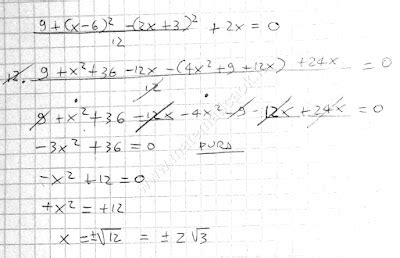 9+(x-6)² -(2x+3)² / 12 + 2x = 0
12. 9+x²+36-12x-(4x²+9+12x) +24x / 12 = 0
9+x²+36-12x-4x²-9-12x+24x = 0
-3x²+36=0 PURA
-x²+12=0
+x²=+12
x=±√12 = ±2√3